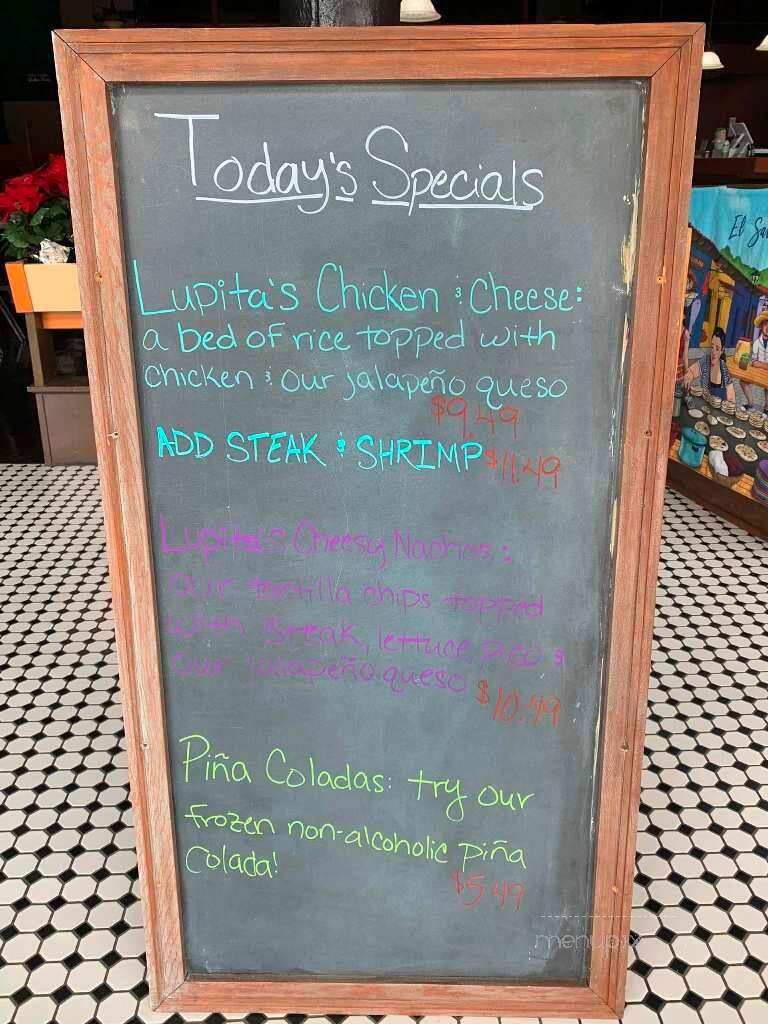 Today's Specials
Lupita's Chicken & Cheese:
a bed of rice topped with
chicken & our jalapeño queso
$9.49
ADD STEAK & SHRIMP $11.49
Lupita's Cheesy Nachos:
Our tortilla chips topped
with steak, lettuce pico &
our jalapeño queso
$10.49
Piña Coladas: try our
frozen non-alcoholic piña
Colada!
$5.49
El
menupix